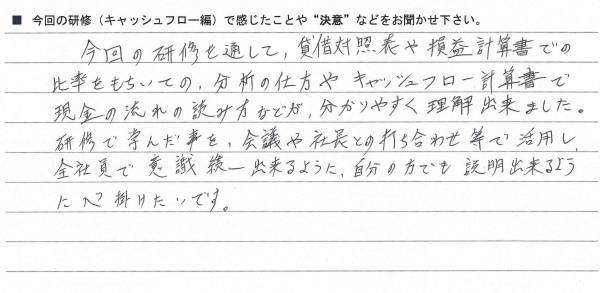 ■ 今回の研修（キャッシュフロー編）で感じたことや“決意”などをお聞かせ下さい。
今回の研修を通して、貸借対照表や損益計算書での
比率をもちいての、分析の仕方やキャッシュフロー計算書で
現金の流れの読み方などが、分かりやすく理解出来ました。
研修で学んだ事を、会議や社長との打ち合わせ等で活用し、
全社員で意識統一出来るように、自分の方でも説明出来るよう
に心掛けたいです。